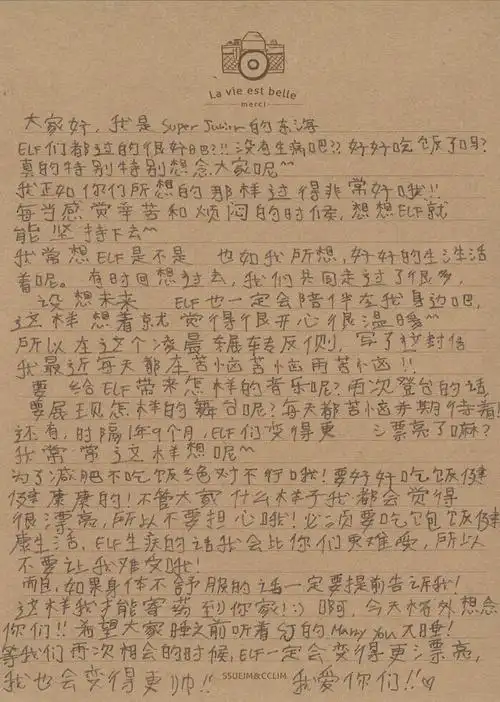 La vie est belle
merci
大家好,我是Super Junior的东海
ELF们都过的很好吧?!!没有生病吧??好好吃饭了吗?
真的特别特别想念大家呢~~
我正如你们所想的那样过得非常好哦!!
每当感觉辛苦和烦闷的时候,想想ELF就
能坚持下去~
我常想ELF是不是 也如我所想,好好的生活生活
着呢。有时回想过去,我们共同走过了很多,
设想未来 ELF也一定会陪伴在我身边吧,
这样想着就觉得很开心很温暖~
所以在这个凌晨辗转反侧,写了这封信
我最近每天都在苦恼苦恼再苦恼!!
要 给ELF带来怎样的音乐呢?再次登台的话
要展现怎样的舞台呢?每天都苦恼并期待着!
还有,时隔1年9个月,ELF们变得更 漂亮了嘛?
我常常这样想呢~
为了减肥不吃饭绝对不行哦!要好好吃饭健
健康康的!不管大家什么样子我都会觉得
很漂亮,所以不要担心哦!必须要吃饱饭健
康生活,ELF生病的话我会比你们更难受,所以
不要让我难受哦!
而且,如果身体不舒服的话一定要提前告诉我!
这样我才能寄药到你家!:) 啊,今天格外想念
你们!!希望大家睡之前听着 的Marry You入睡!
等我们再次相会的时候,ELF一定会变得更漂亮,
我也会变得更帅!! 我爱你们!!♡
SSUEIM&CCLIM